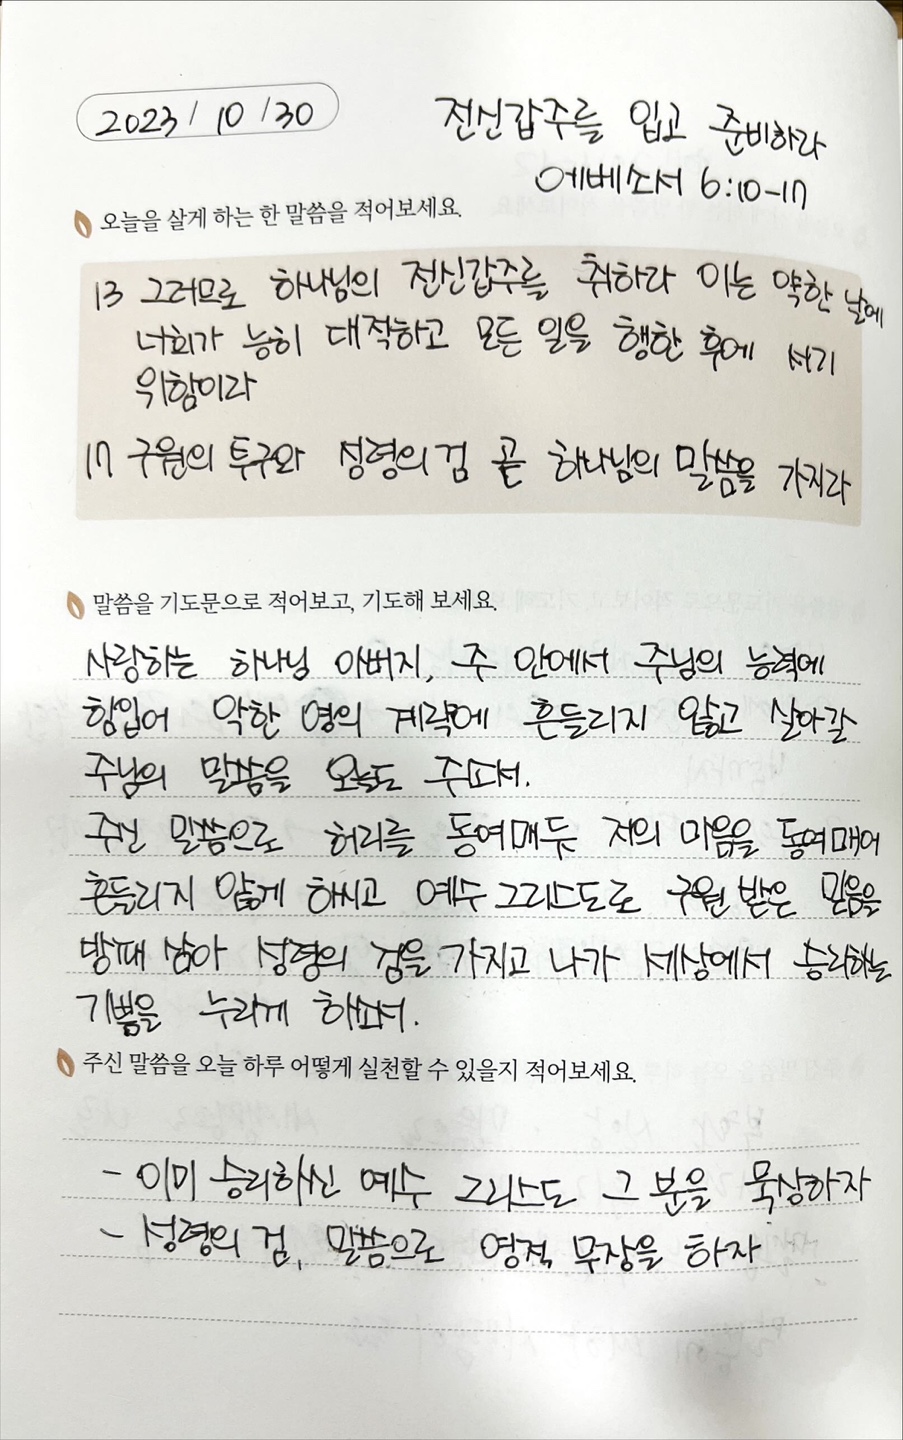 2023/10/30
전신갑주를 입고 준비하라
에베소서 6:10-17
오늘을 살게 하는 한 말씀을 적어보세요.
13 그러므로 하나님의 전신갑주를 취하라 이는 악한 날에
너희가 능히 대적하고 모든 일을 행한 후에 서기
위함이라
17 구원의 투구와 성령의 검 곧 하나님의 말씀을 가지라
말씀을 기도문으로 적어보고, 기도해 보세요.
사랑하는 하나님 아버지, 주 안에서 주님의 능력에
힘입어 악한 영의 계략에 흔들리지 않고 살아갈
주님의 말씀을 오늘도 주소서.
주신 말씀으로 허리를 동여매듯 저의 마음을 동여매어
흔들리지 않게 하시고 예수 그리스도로 구원 받은 믿음을
방패 삼아 성령의 검을 가지고 나가 세상에서 승리하는
기쁨을 누리게 하소서.
주신 말씀을 오늘 하루 어떻게 실천할 수 있을지 적어보세요.
- 이미 승리하신 예수 그리스도 그 분을 묵상하자
- 성령의 검, 말씀으로 영적 무장을 하자